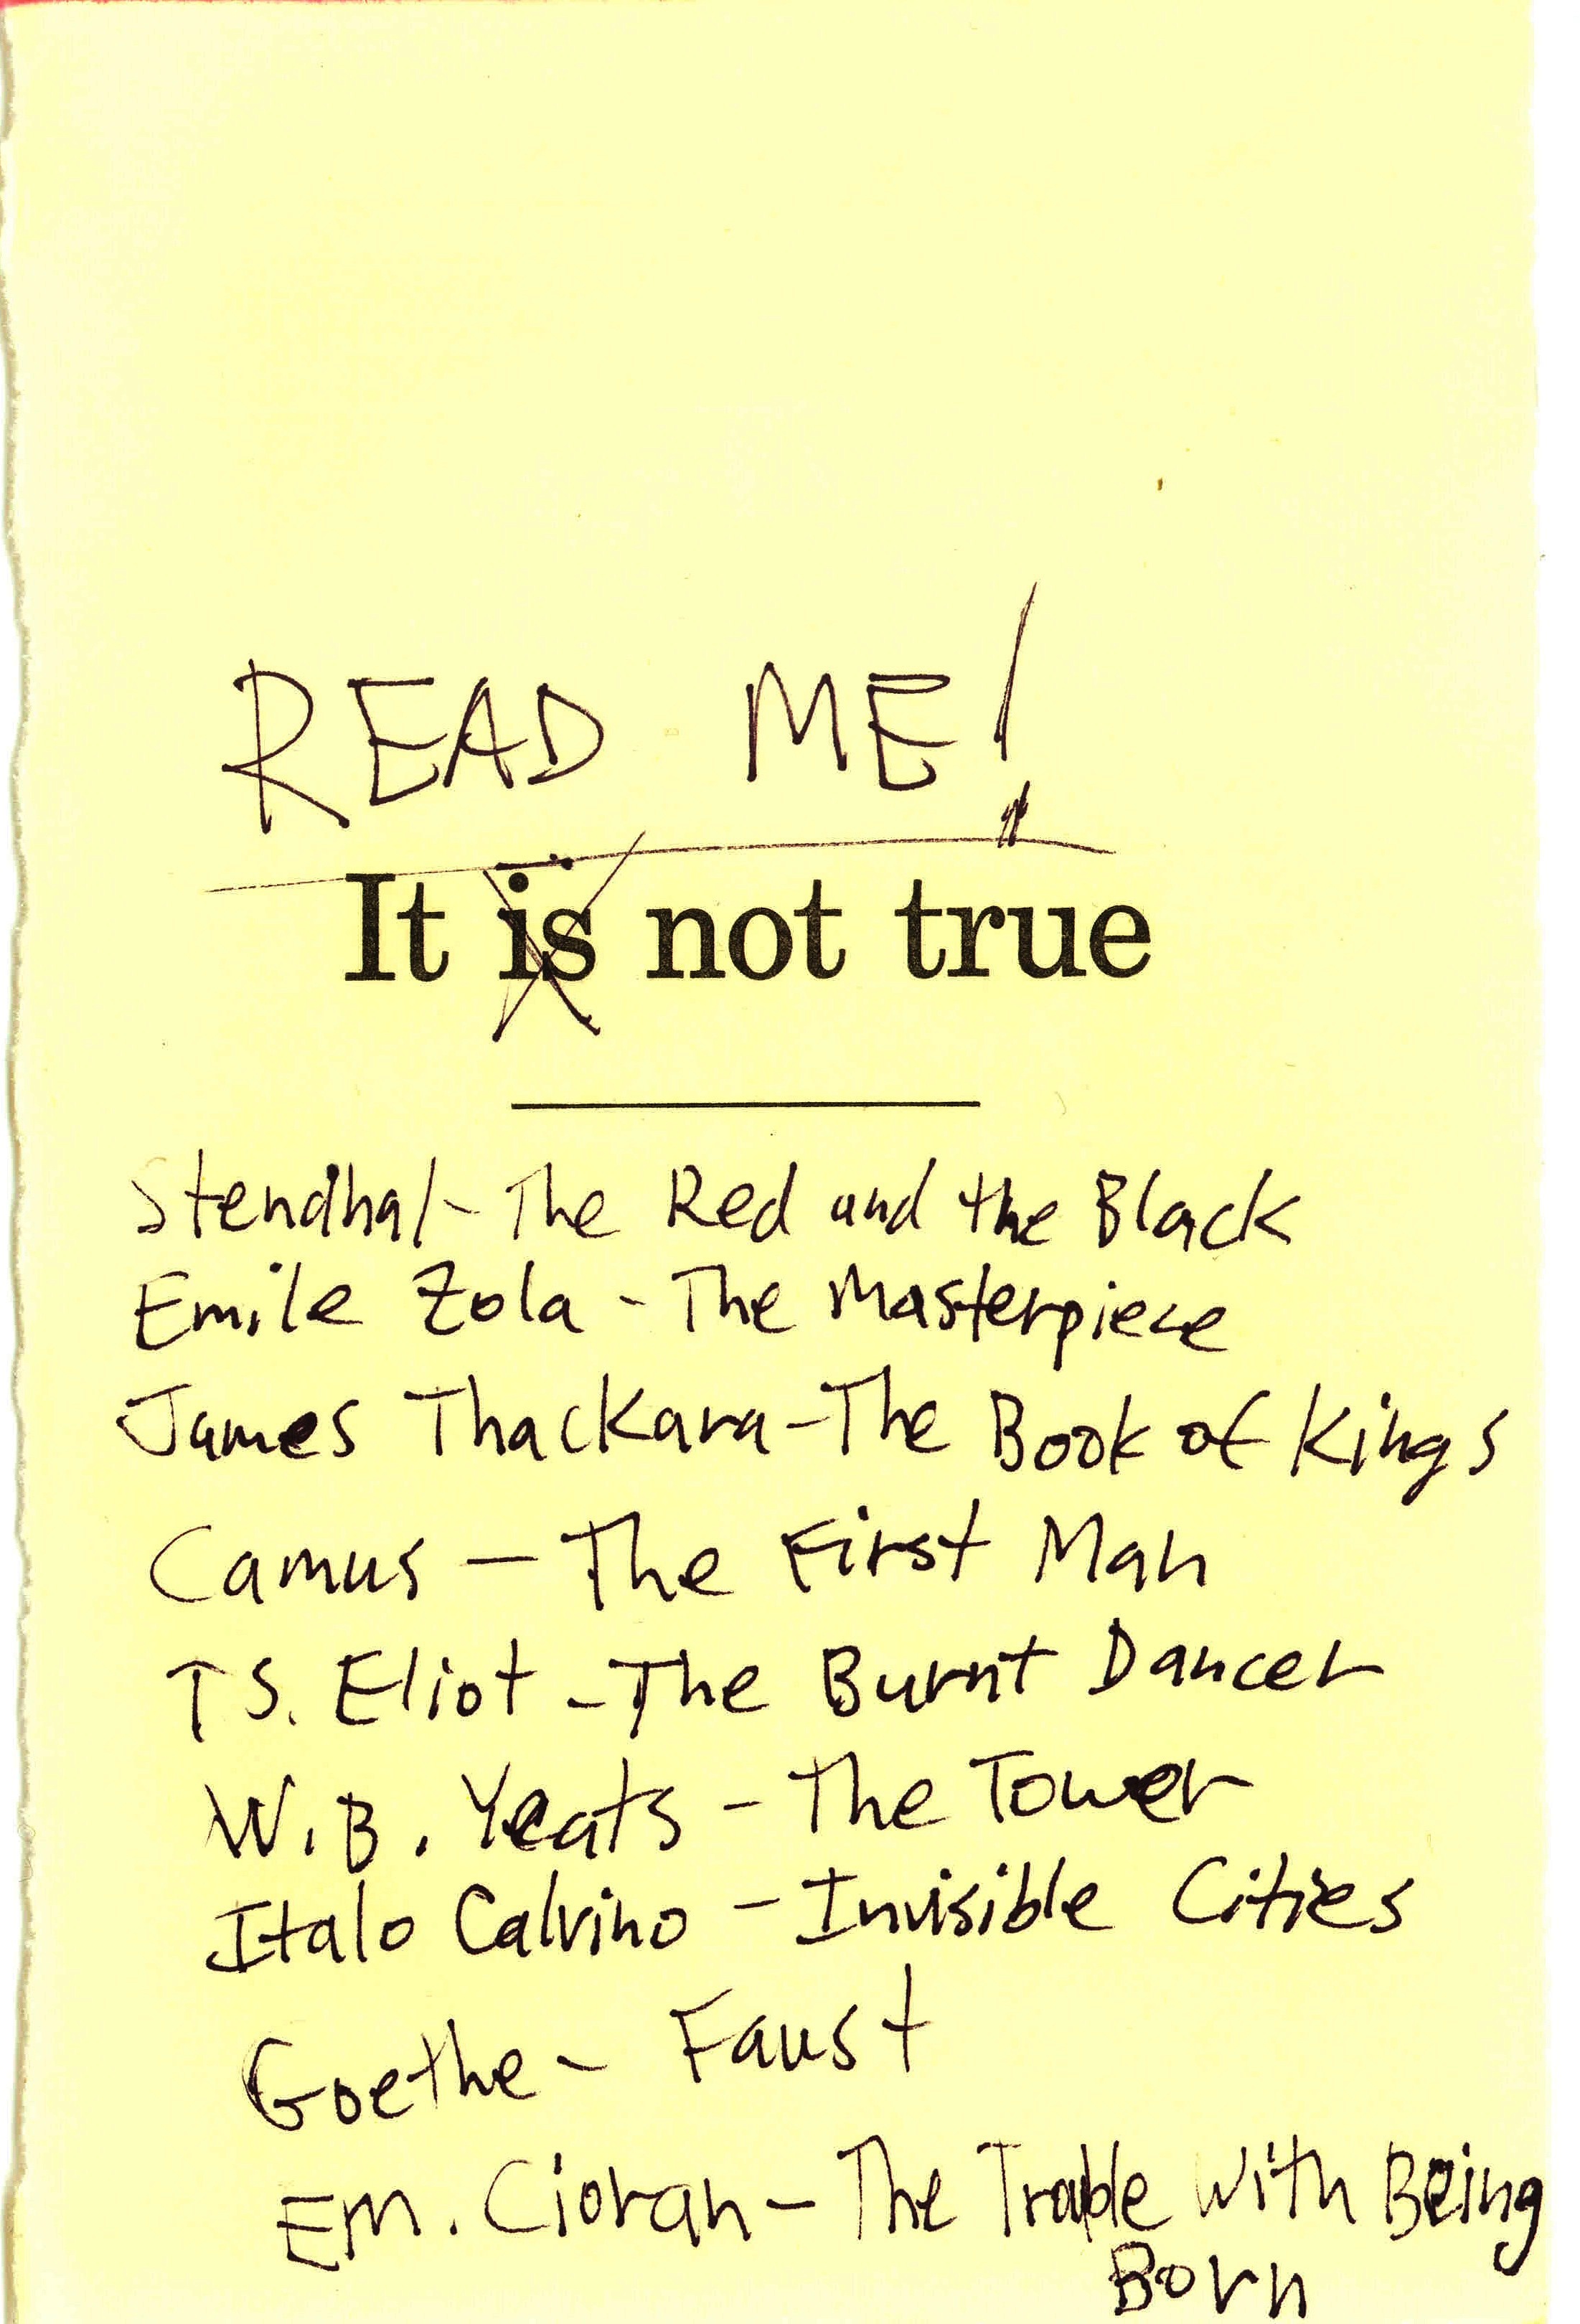 READ ME!
It is not true
Stendhal - The Red and the Black
Emile Zola - The Masterpiece
James Thackara - The Book of Kings
Camus - The First Man
T S. Eliot - The Burnt Dancer
W. B. Yeats - The Tower
Italo Calvino - Invisible Cities
Goethe - Faust
EM. Cioran - The Trouble With Being
Born